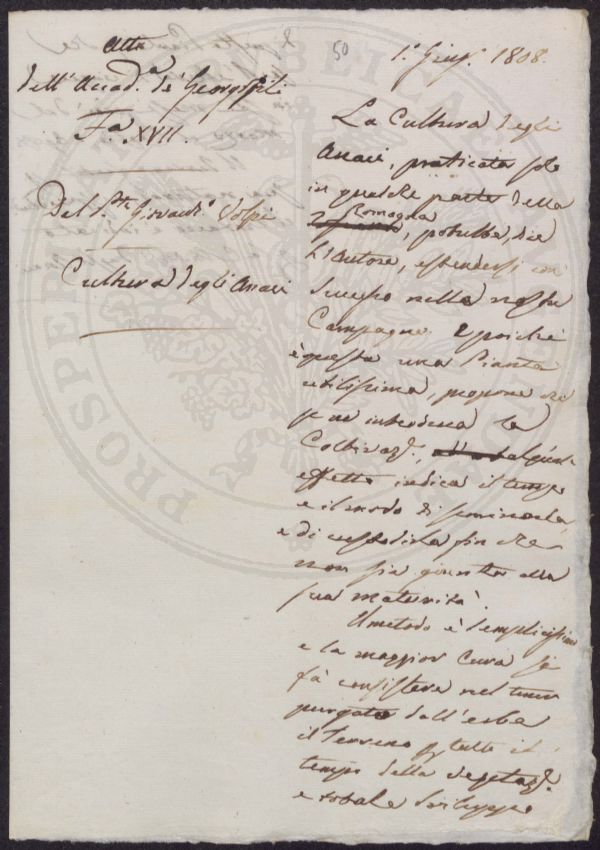 Atti
dell'Accad.a de' Georgofili
F.a XVII.
Del S.re Giovacch.o Volpi
Cultura degli Anaci
50
1.o Giug.o 1808.
La Cultura degli
Anaci, praticata solo
in qualche parte della
Romagna
, potrebbe, dice
L'Autore, estendersi con
Successo nelle nostre
Campagne. E poichè
è questa una Pianta
utilissima, propone che
se ne introduca la
Coltivaz.e, al qual
effetto indica il tempo
e il modo di seminarla,
e di custodirla fin che
non sia giunta alla
sua maturità.
Il metodo è semplicissimo
e la maggior Cura si
fà consistere nel tener
purgato dall'erba
il Terreno p tutto il
tempo della vegetaz.e
e totale sviluppo
PROSPERITATI PUBLICAE AUGENDAE